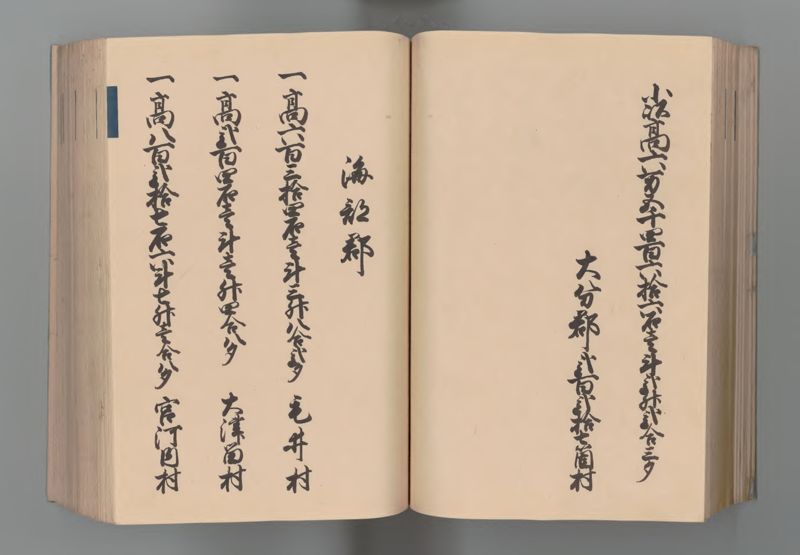 小以高六万五千四百六拾六石壱斗弐升弐合三夕
大分郡弐百弐拾七箇村
海部郡
一高六百三拾四石壱斗三升八合弐夕 毛井村
一高弐百四石壱斗壱升四合八夕 大津留村
一高八百弐拾七石六斗七升壱合八夕 宮河内村